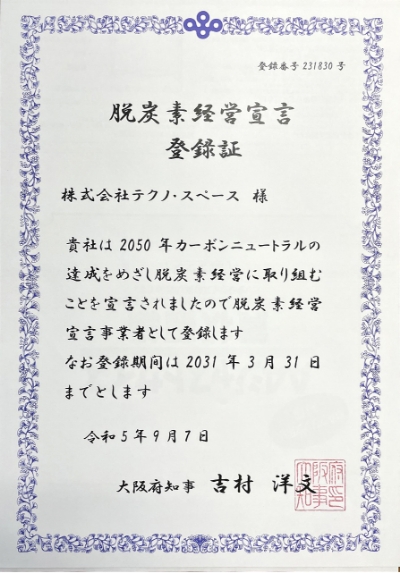 登録番号231830号
脱炭素経営宣言
登録証
株式会社テクノ・スペース 様
貴社は2050年カーボンニュートラルの
達成をめざし脱炭素経営に取り組む
ことを宣言されましたので脱炭素経営
宣言事業者として登録します
なお登録期間は2031年3月31日
までとします
令和5年9月7日
大阪府知事 吉村 洋文